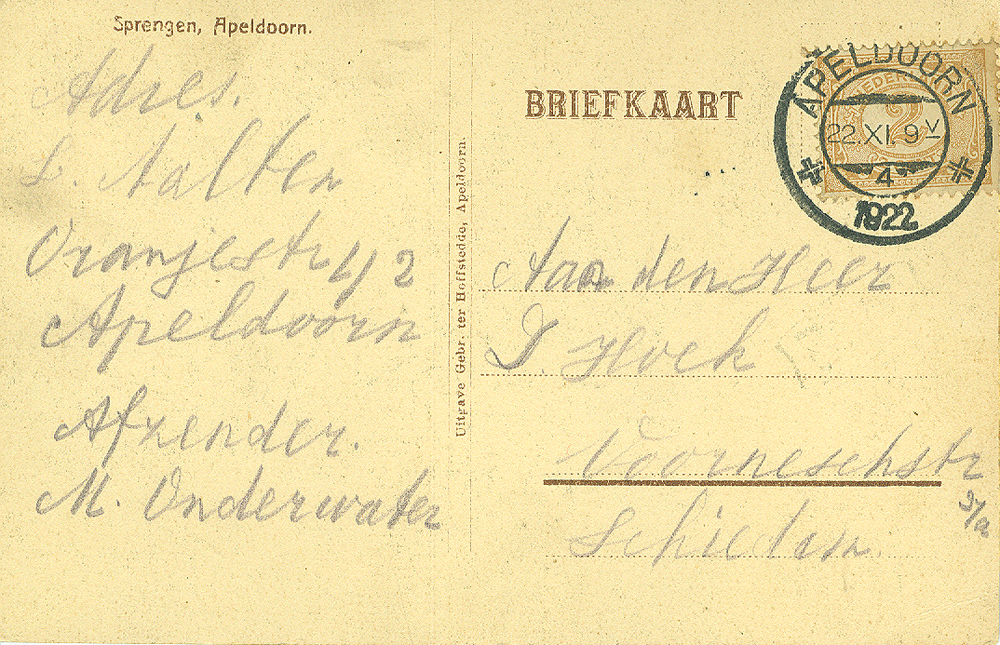 Sprengen, Apeldoorn.
Adres.
L. Aalten
Oranjestr 42
Apeldoorn
Afzender.
M. Onderwater
Uitgave Gebr. ter Hoffstedde, Apeldoorn.
BRIEFKAART
APELDOORN
22.XI. 9V
4
1922
NEDER
2
Aan den Heer
J. Hoek
Voorneschstr
Schiedam.